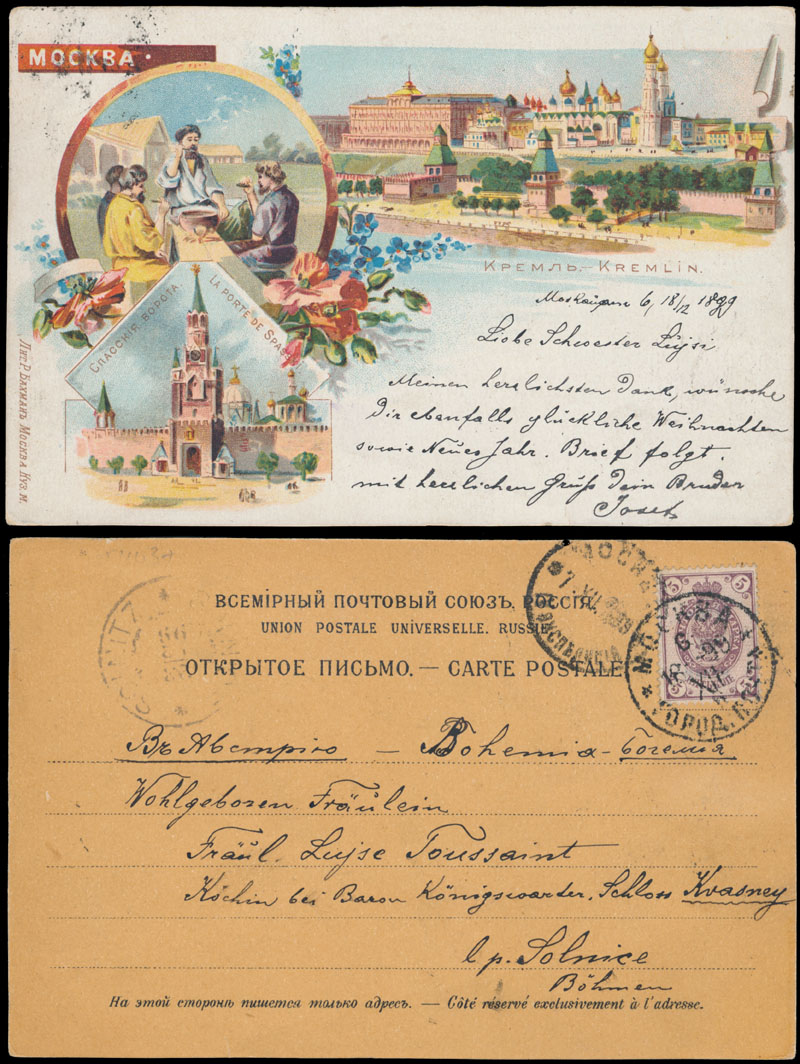 МОСКВА
КРЕМЛЬ.-KREMLIN.
СПАССКІЯ ВОРОТА
LA PORTE DE SPAS
ЛИТ. Р. БАХМАНЪ МОСКВА КУЗ. М.
6/18/12 1899
Liebe Schwester Lujsi
Meinen herzlichsten Dank, wünsche
Dir ebenfalls glückliche Weihnachten
sowie Neues Jahr. Brief folgt.
mit herzlichen Gruß Dein Bruder
Josef
ВСЕМІРНЫЙ ПОЧТОВЫЙ СОЮЗЪ, РОССІЯ.
UNION POSTALE UNIVERSELLE. RUSSIE
ОТКРЫТОЕ ПИСЬМО. — CARTE POSTALE
МОСКВА
7 XII 1899
ЭКСПЕДИЦІЯ
5 5
5 5
МОСКВА
6 XII 99
ГОРОД. ПОЧТ
Въ Австрію — Bohemia - Богемия
Wohlgeboren Fräulein
Fräul. Lujse Toussaint
Köchin bei Baron Königswarter, Schloss Kvasney
l.p. Solnice
Böhmen
На этой сторонѣ пишется только адресъ. — Côté réservé exclusivement à l'adresse.